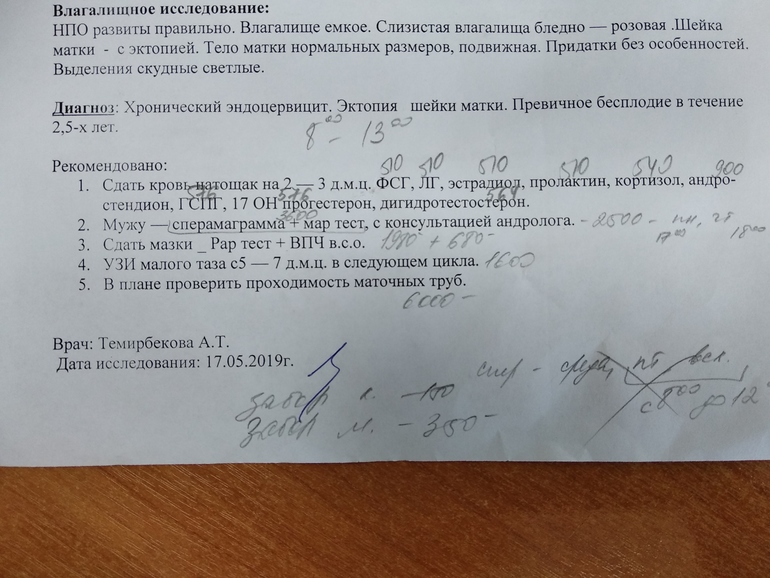 Влагалищное исследование:
НПО развиты правильно. Влагалище емкое. Слизистая влагалища бледно — розовая .Шейка
матки - с эктопией. Тело матки нормальных размеров, подвижная. Придатки без особенностей.
Выделения скудные светлые.
Диагноз: Хронический эндоцервицит. Эктопия шейки матки. Превичное бесплодие в течение
2,5-х лет.
8⁰⁰ - 13⁰⁰
Рекомендовано:
510 510 510 510 540 900
1. Сдать кровь натощак на 2 — 3 д.м.ц. ФСГ, ЛГ, эстрадиол, пролактин, кортизол, андро-
576 576 564
стендион, ГСПГ, 17 ОН прогестерон, дигидротестостерон.
3600
2. Мужу — сперамаграмма + мар тест, с консультацией андролога. - 2500 - пн, чт
17⁰⁰ 18⁰⁰
3. Сдать мазки _ Рар тест + ВПЧ в.с.о. 1980 + 680-
4. УЗИ малого таза с5 — 7 д.м.ц. в следующем цикла. 1600
5. В плане проверить проходимость маточных труб.
6000 -
Врач: Темирбекова А.Т.
Дата исследования: 17.05.2019г.
спер - среда, пт, вск.
забор к. - 150
с 8⁰⁰ до 12
забор м. - 350-